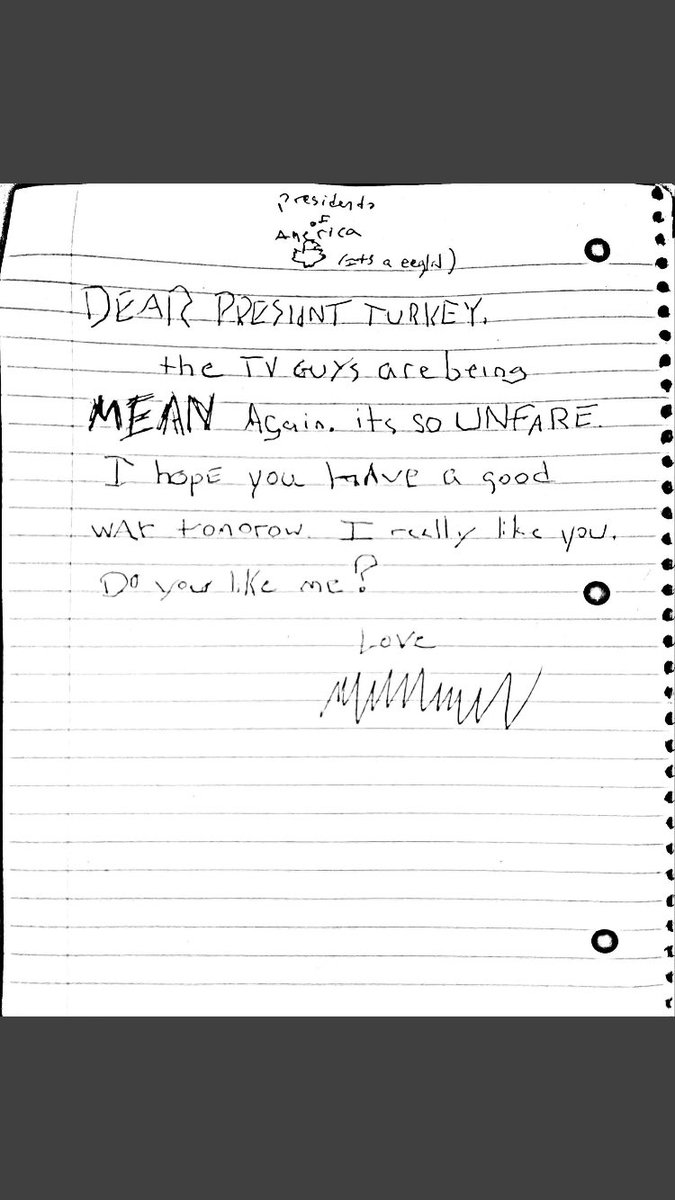 presidents
of
America
(its a eegld)
DEAR PRESIdNT TURKEY.
the TV GUYS are being
MEAN Again. its so UNFARE.
I hope you HAVE a good
WAr tonorow. I really like you.
Do you like me?
Love